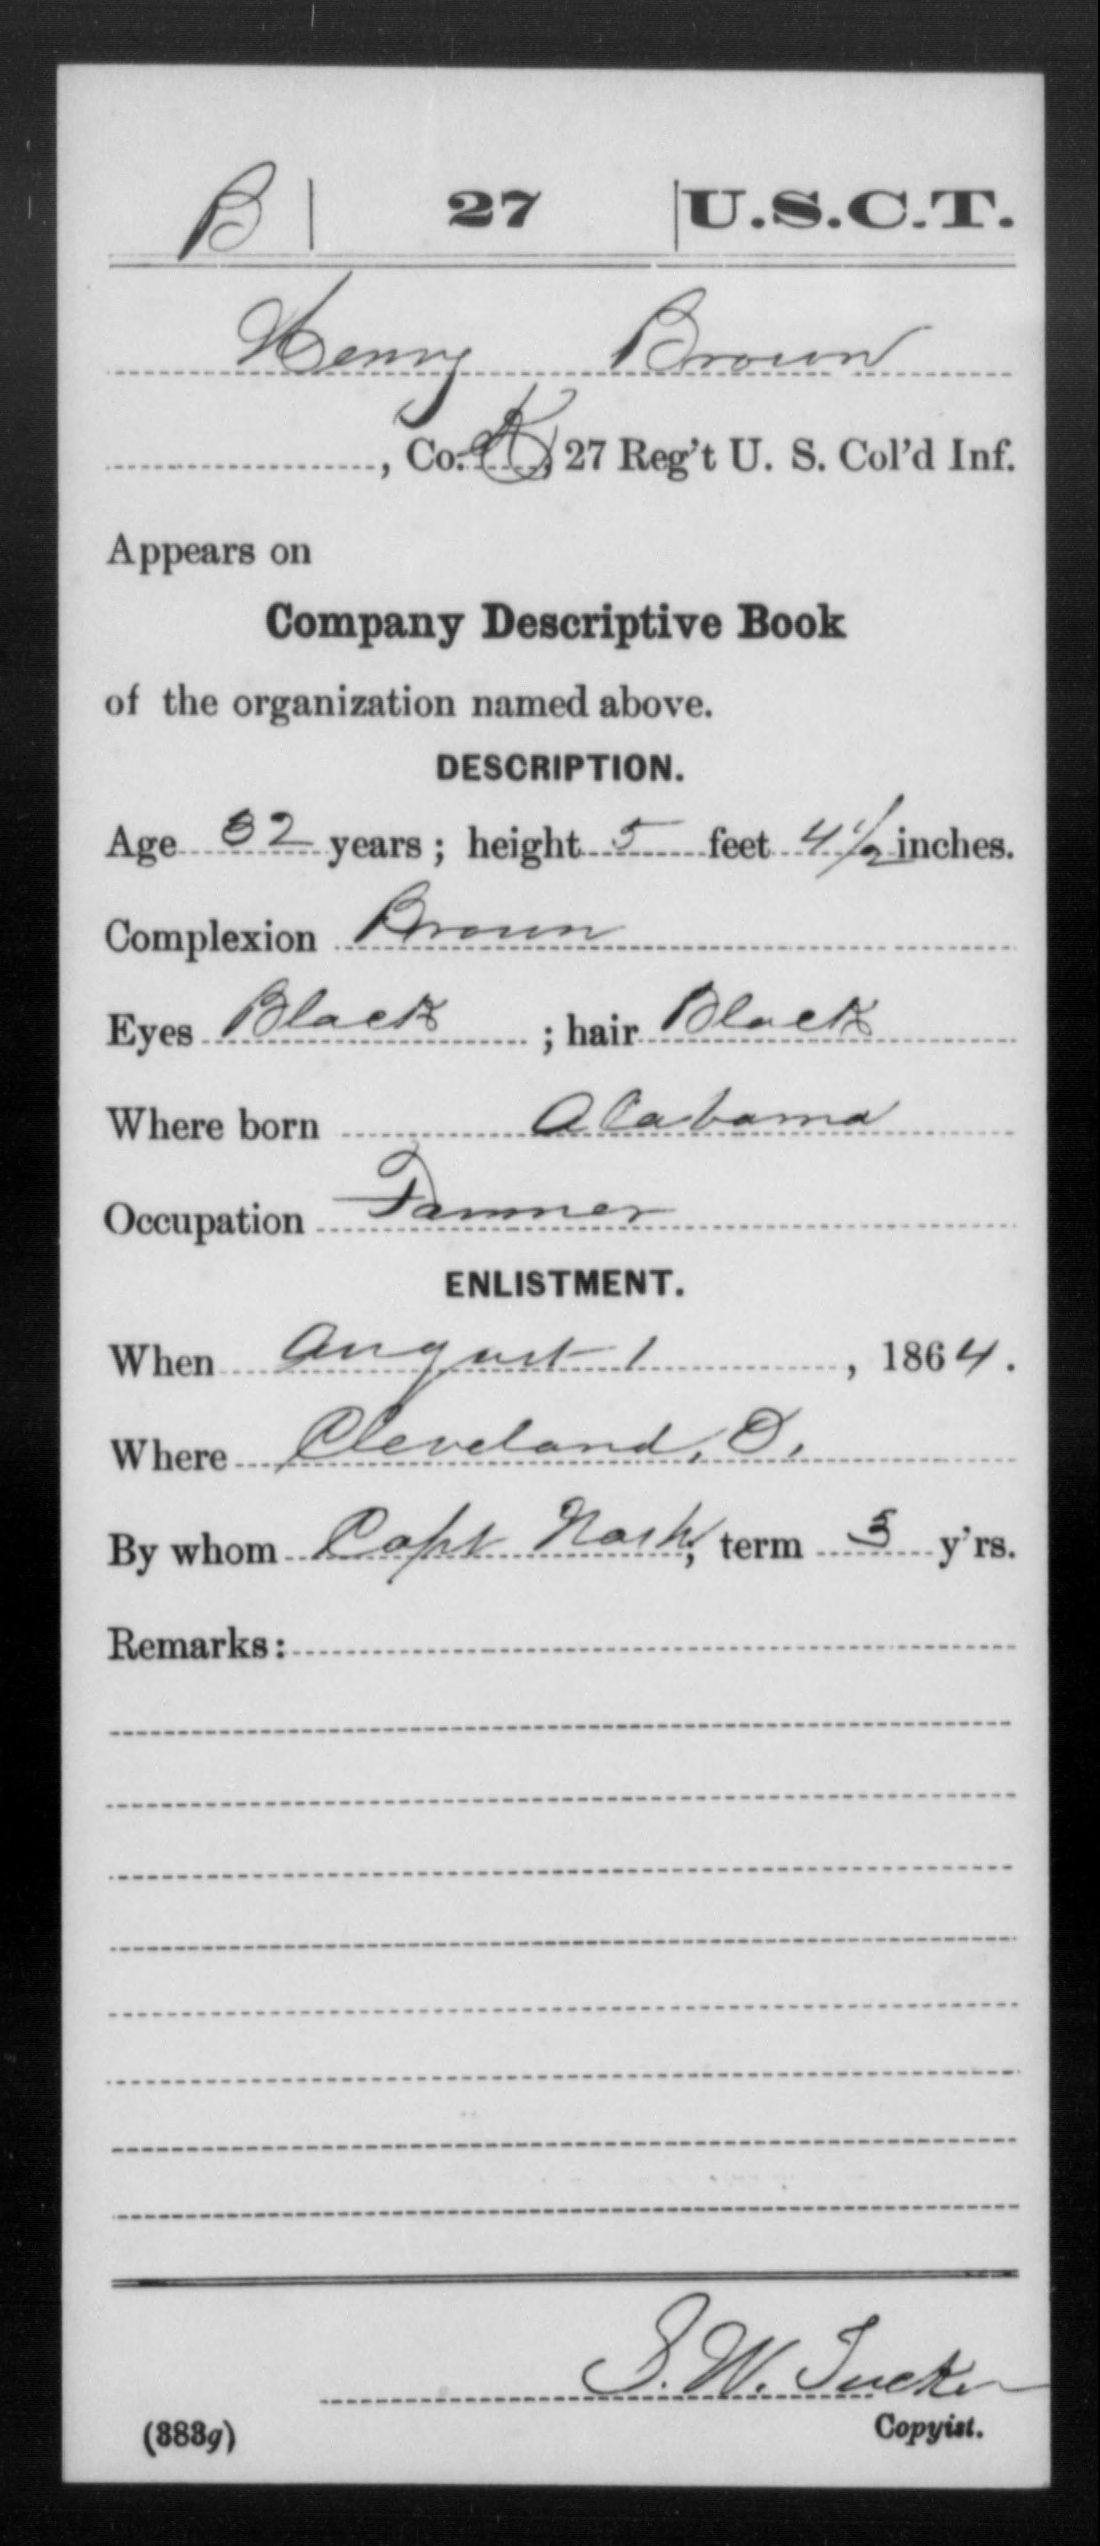 B | 27 | U.S.C.T.
Henry Brown
, Co. K, 27 Reg't U. S. Col'd Inf.
Appears on
Company Descriptive Book
of the organization named above.
DESCRIPTION.
Age 32 years; height 5 feet 4 1/2 inches.
Complexion Brown
Eyes Black ; hair Black
Where born Alabama
Occupation
ENLISTMENT.
When August 1, 1864.
Where Cleveland, O.
By whom Capt Nash; term 3 y'rs.
Remarks:
S. W. Tucker
(383g) Copyist.